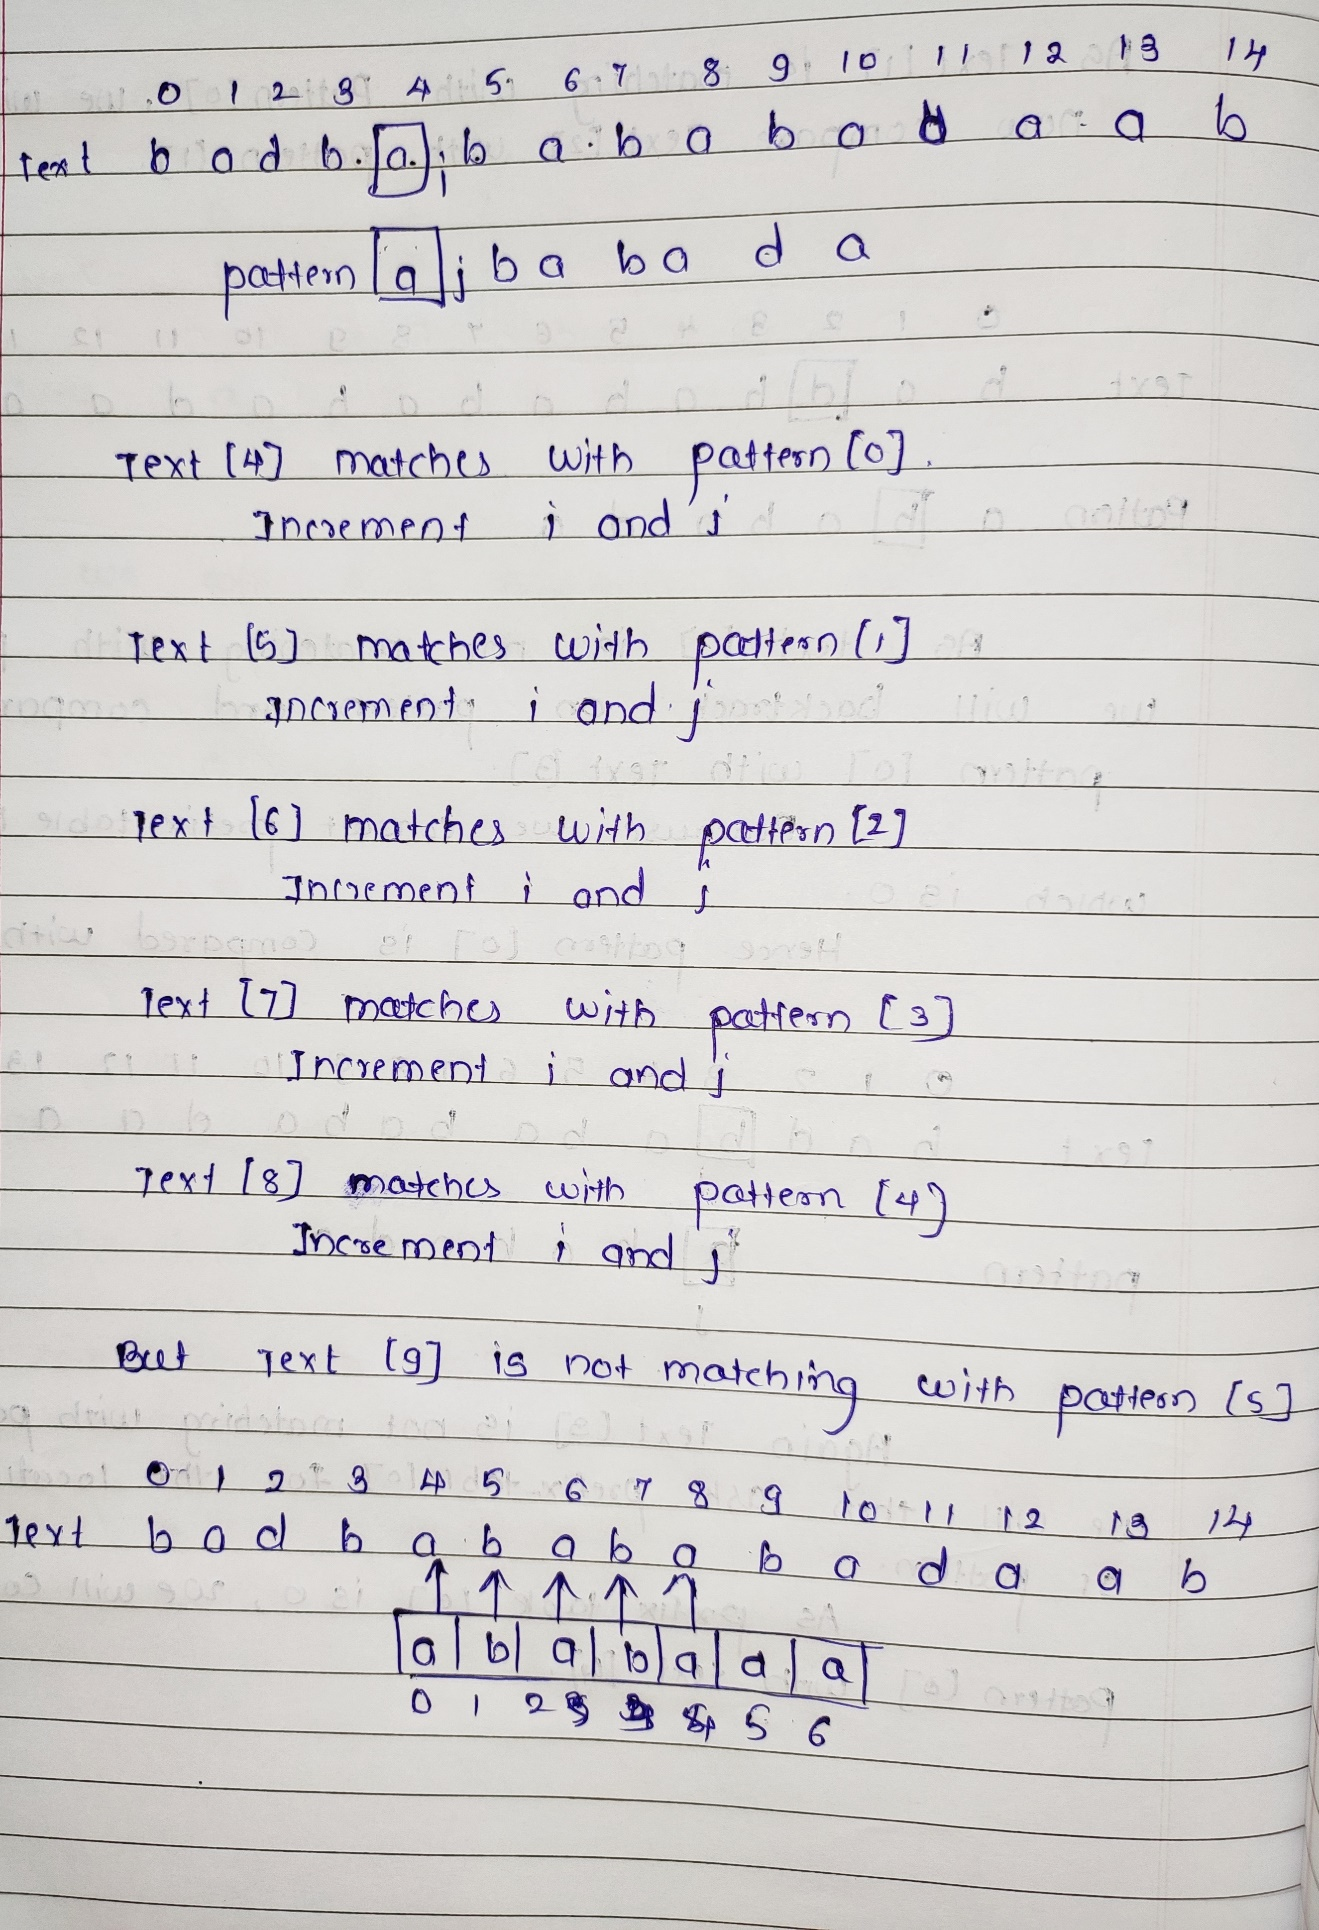 0 1 2 3 4 5 6 7 8 9 10 11 12 13 14
Text b a d b [a] i b a b a b a d a a b
pattern [a] j b a b a d a
Text [4] matches with pattern [0].
Increment i and j
Text [5] matches with pattern [1]
Increment i and j
Text [6] matches with pattern [2]
Increment i and j
Text [7] matches with pattern [3]
Increment i and j
Text [8] matches with pattern [4]
Increment i and j
But Text [9] is not matching with pattern [5]
0 1 2 3 4 5 6 7 8 9 10 11 12 13 14
Text b a d b a b a b a b a d a a b
a b a b a a a
0 1 2 3 4 5 6